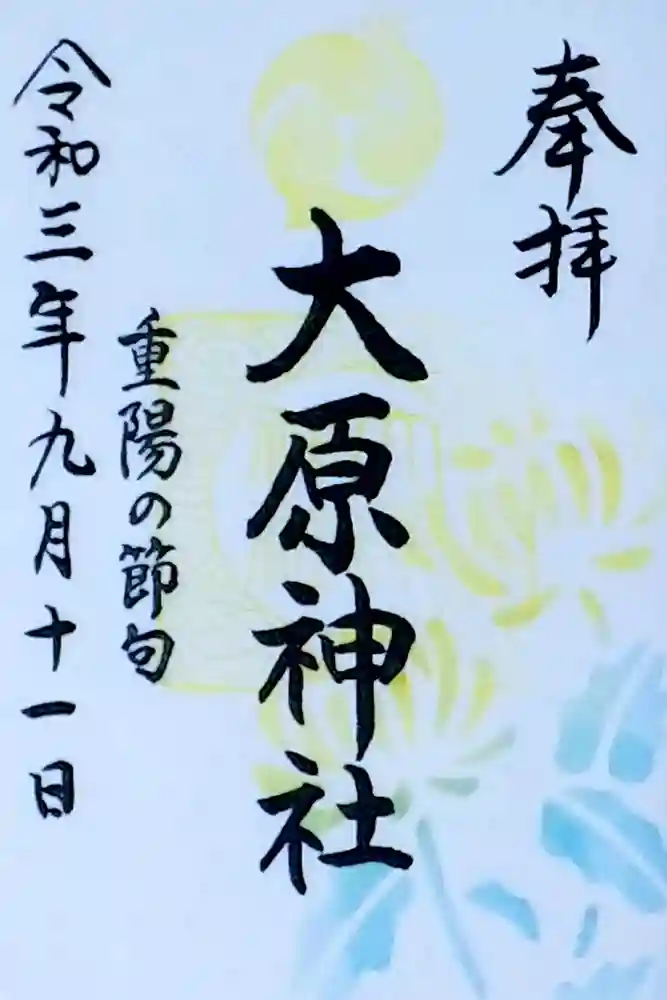 奉拝
大原神社
重陽の節句
令和三年九月十一日